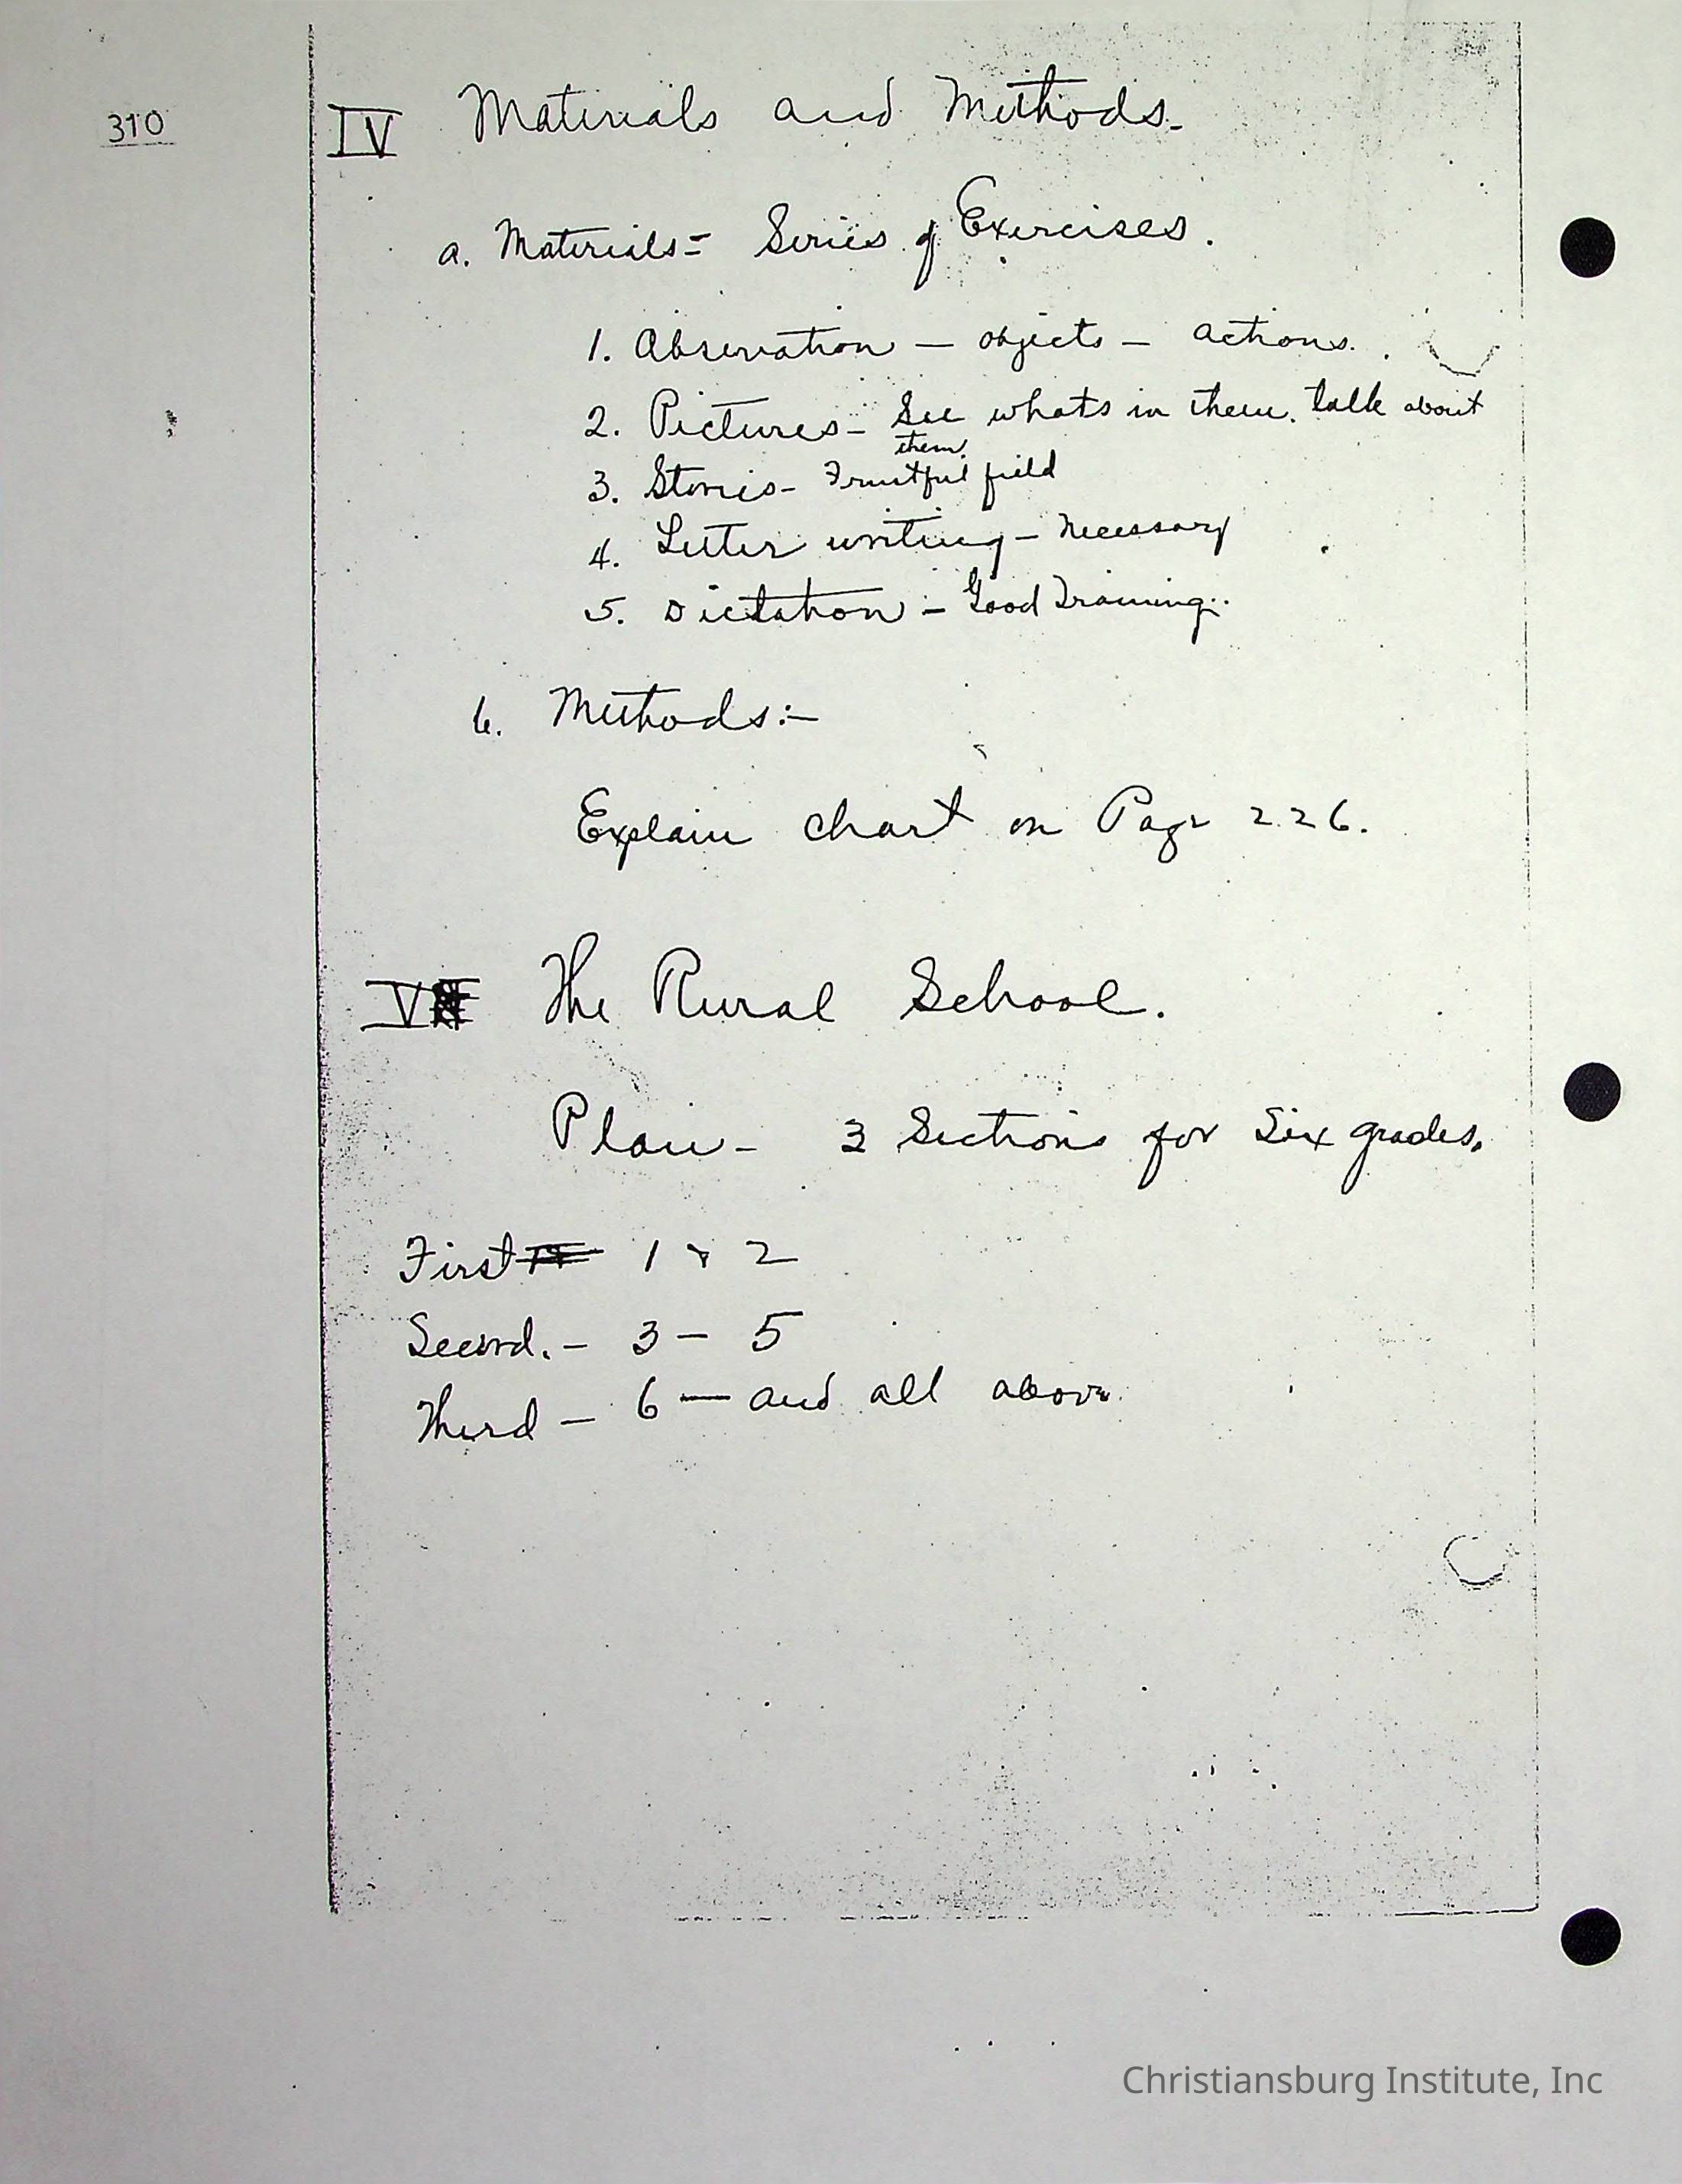 310
IV Materials and Methods.
a. Materials - Series of Exercises.
1. Observation - objects - actions.
2. Pictures - See whats in them. talk about
them.
3. Stories - Fruitful field
4. Letter writing - necessary
5. Dictation - Good Training.
b. Methods:-
Explain chart on Page 226.
V The Rural School.
Plan - 3 Sections for Six grades.
First 1 & 2
Second. - 3 - 5
Third - 6 - and all above.
Christiansburg Institute, Inc